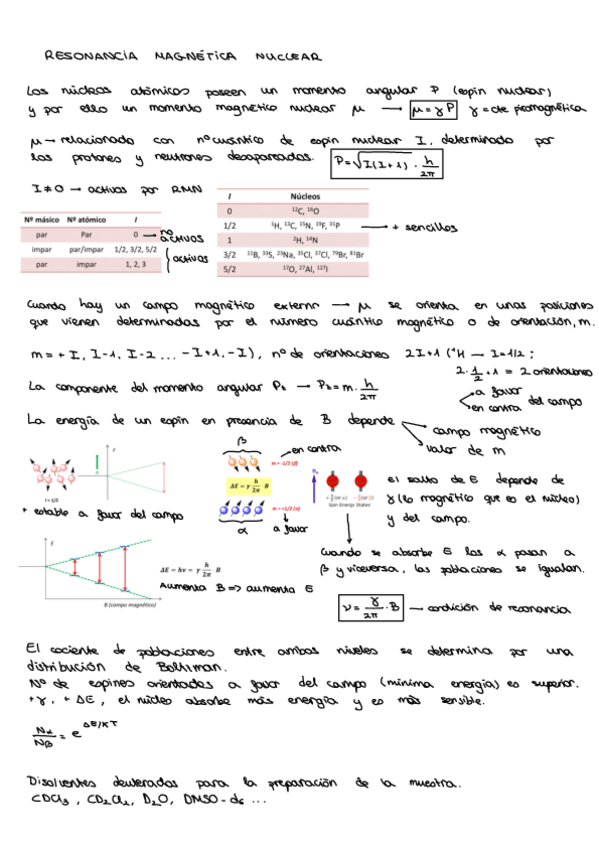 RESONANCIA MAGNÉTICA NUCLEAR
Los núcleos atómicos poseen un momento angular P (espín nuclear)
y por ello un momento magnético nuclear μ → μ = γ P γ = cte giromagnética
μ → relacionado con nº cuántico de espín nuclear I, determinado por
los protones y neutrones desapareados. P = √I(I+1) · h/2π
I ≠ 0 → activos por RMN
Nº másico Nº atómico I
par Par 0 → no activos
impar par/impar 1/2, 3/2, 5/2
par impar 1, 2, 3
activos
I Núcleos
0 ¹²C, ¹⁶O
1/2 ¹H, ¹³C, ¹⁵N, ¹⁹F, ³¹P → + sencillos
1 ²H, ¹⁴N
3/2 ¹¹B, ³³S, ²³Na, ³⁵Cl, ³⁷Cl, ⁷⁹Br, ⁸¹Br
5/2 ¹⁷O, ²⁷Al, ¹²⁷I
Cuando hay un campo magnético externo → μ se orienta en unas posiciones
que vienen determinadas por el número cuántico magnético o de orientación, m.
m = + I, I-1, I-2 ... -I+1, -I), nº de orientaciones 2I+1 (¹H → I=1/2 ;
2 · 1/2 + 1 = 2 orientaciones
a favor
en contra
del campo
La componente del momento angular Pz → Pz = m · h/2π
La energía de un espín en presencia de B depende
campo magnético
valor de m
β
en contra
m = -1/2 (β)
ΔE = γ h/2π · B
m = +1/2 (α)
α
a favor
E
I = 1/2
+ estable a favor del campo
B₀
Spin Energy States
El salto de E depende de
γ (lo magnético que es el núcleo)
y del campo.
Cuando se absorbe E los α pasan a
β y viceversa, las poblaciones se igualan.
E
B (campo magnético)
ΔE = hν = γ h/2π · B
Aumenta B => aumenta E
ν = γ/2π · B → condición de resonancia
El cociente de poblaciones entre ambos niveles se determina por una
distribución de Boltzman.
Nº de espines orientados a favor del campo (mínima energía) es superior.
+γ, + ΔE, el núcleo absorbe más energía y es más sensible.
Nα/Nβ = e^ΔE/KT
Disolventes deuterados para la preparación de la muestra.
CDCl₃, CD₂Cl₂, D₂O, DMSO-d₆ ...